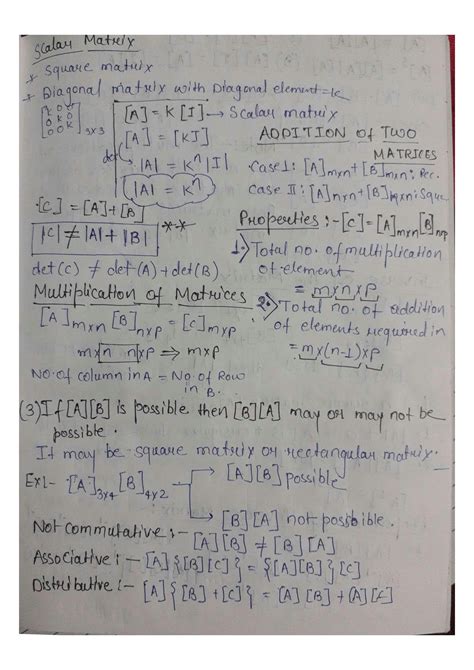 Scalar Matrix
* Square matrix
* Diagonal matrix with Diagonal element = k
[k 0 0
0 k 0
0 0 k] 3x3
[A] = K [I] → Scalar matrix
[A] = [KI]
det
|A| = kⁿ |I|
|A| = kⁿ
ADDITION of TWO
MATRICES
Case I: [A]mxn + [B]mxn; Rec.
Case II: [A]nxn + [B]nxn; Square
[C] = [A] + [B]
|C| ≠ |A| + |B| **
det(C) ≠ def(A) + def(B)
Properties :- [C] = [A]mxn [B]nxp
1. Total no. of multiplication
of element
= mxnxp
2. Total no. of addition
of elements required in
= mx(n-1)xp
Multiplication of Matrices
[A]mxn [B]nxp = [C]mxp
mxn nxp ⇒ mxp
No. of column in A = No. of Row
in B.
(3) If [A][B] is possible then [B][A] may or may not be
possible.
It may be square matrix or rectangular matrix.
Ex:- [A]3x4 [B]4x2 → [A][B] possible
→ [B][A] not possible.
Not commutative :-
[A][B] ≠ [B][A]
Associative :- [A]{[B][C]} = {[A][B]}[C]
Distributive :- [A]{[B]+[C]} = [A][B] + [A][C]